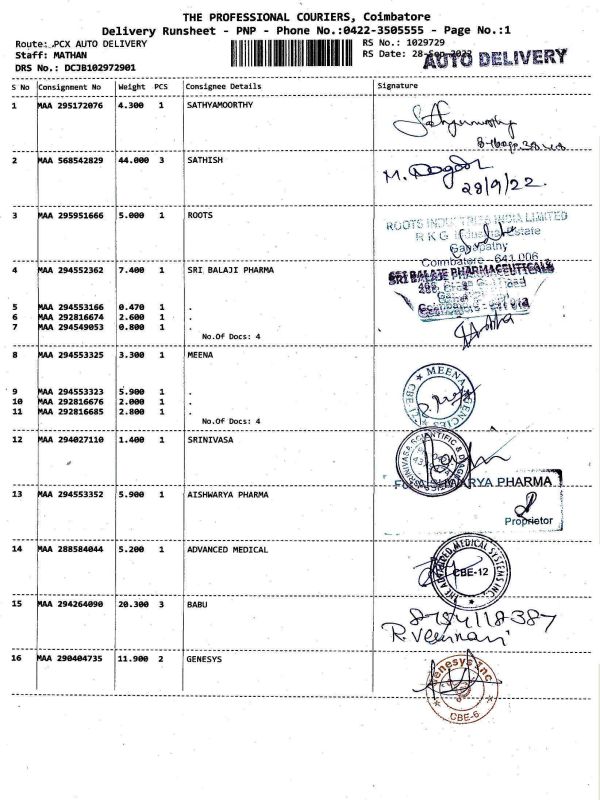 THE PROFESSIONAL COURIERS, Coimbatore
Delivery Runsheet - PNP - Phone No.:0422-3505555 - Page No.:1
Route: PCX AUTO DELIVERY
RS No.: 1029729
Staff: MATHAN
RS Date: 28-Sep-2022
AUTO DELIVERY
DRS No.: DCJB102972901
S No Consignment No Weight PCS Consignee Details Signature
1 MAA 295172076 4.300 1 SATHYAMOORTHY
Sathyamoorthy
2 MAA 568542829 44.000 3 SATHISH
28/9/22.
3 MAA 295951666 5.000 1 ROOTS
ROOTS INDUSTRIES INDIA LIMITED
R K G Industrial Estate
Ganapathy
Coimbatore - 641 006
4 MAA 294552362 7.400 1 SRI BALAJI PHARMA
SRI BALAJI PHARMACEUTICALS
5 MAA 294553166 0.470 1 .
6 MAA 292816674 2.600 1 .
7 MAA 294549053 0.800 1 .
No.Of Docs: 4
8 MAA 294553325 3.300 1 MEENA
MEENA AGENCIES
CBE-12
9 MAA 294553323 5.900 1 .
10 MAA 292816676 2.000 1 .
11 MAA 292816685 2.800 1 .
No.Of Docs: 4
12 MAA 294027110 1.400 1 SRINIVASA
SRINIVASA SCIENTIFIC &
For AISHWARYA PHARMA
13 MAA 294553352 5.900 1 AISHWARYA PHARMA
Proprietor
14 MAA 288584044 5.200 1 ADVANCED MEDICAL
THE ADVANCED MEDICAL SYSTEMS INC.
CBE-12
15 MAA 294264090 20.300 3 BABU
8754118387
16 MAA 290404735 11.900 2 GENESYS
Genesys Inc
CBE-6